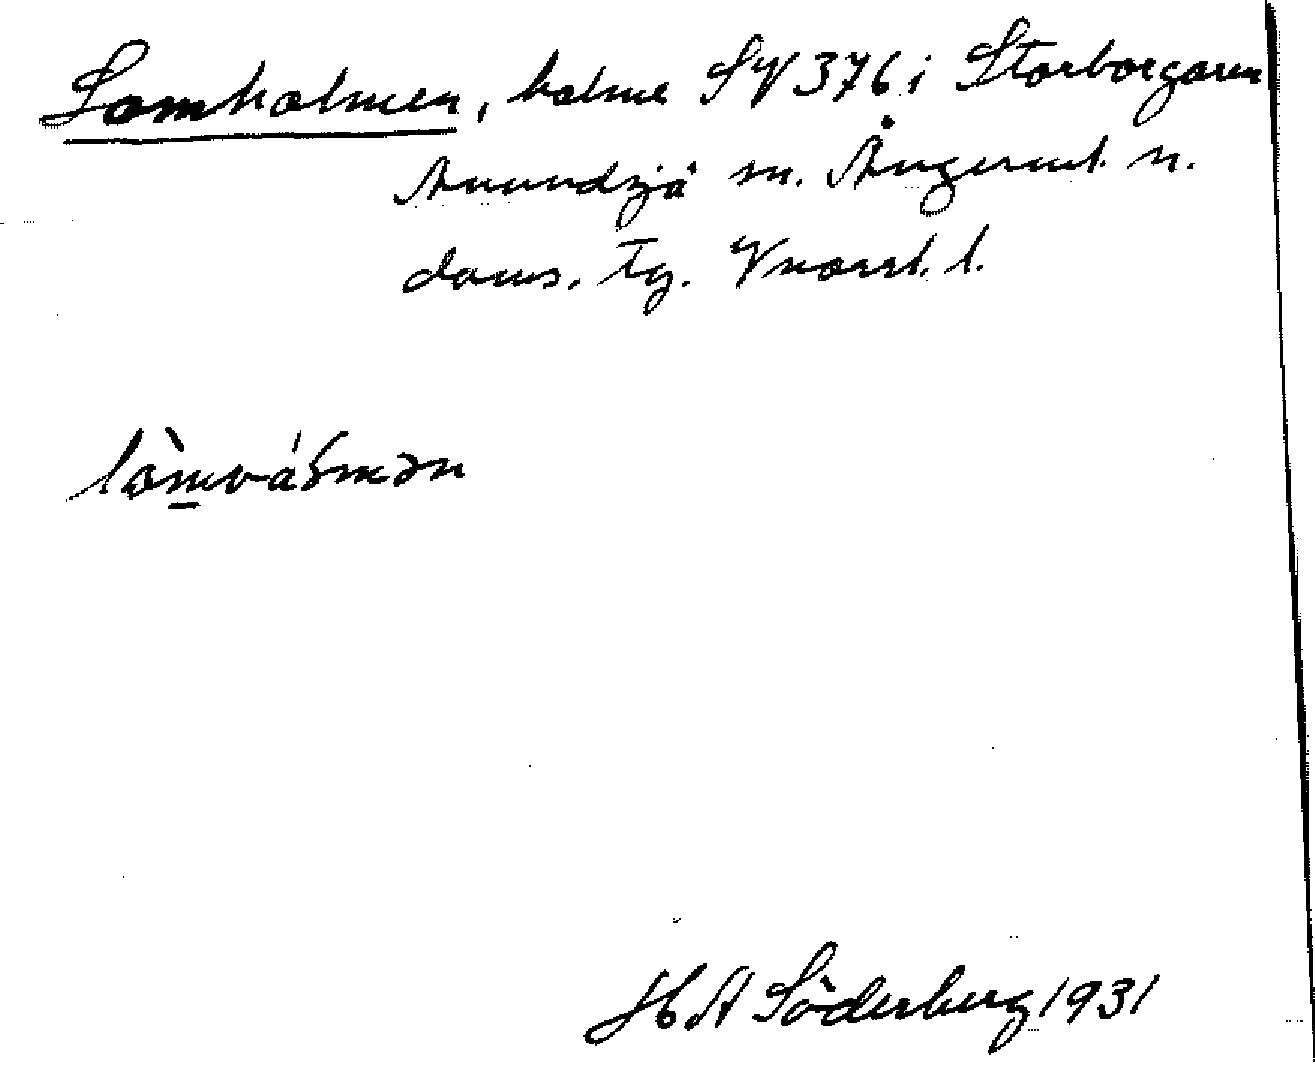 Lomholmen, holme SV 376 i Storborgaren
Anundsjö sn. Ångerml. n.
doms. fg. Vnorrl. l.
lòmváʃmən
H A Söderberg 1931